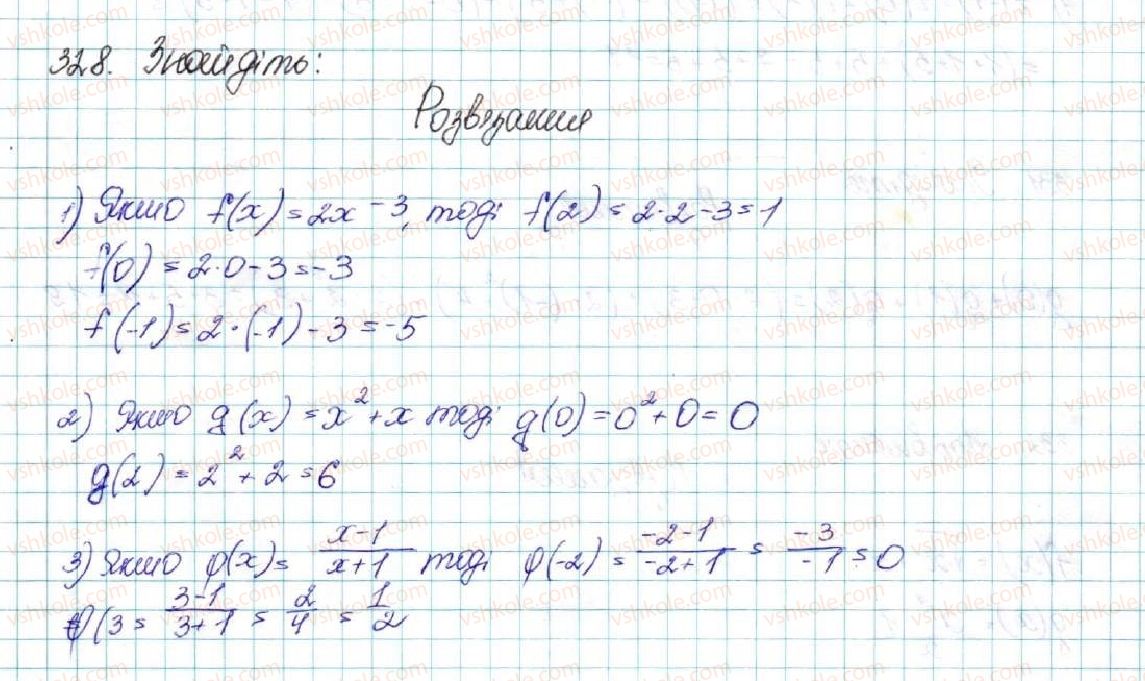 328. Знайдіть:
Розвязання
1) Якшо f(x) = 2x - 3, тоді f(2) = 2·2-3=1
f(0) = 2·0-3=-3
f(-1) = 2·(-1)-3=-5
2) Якшо g(x) = x²+x тоді g(0)=0²+0=0
g(2) = 2²+2=6
3) Якшо φ(x)= x-1/x+1 тоді φ(-2) = -2-1/-2+1 = -3/-1 = 0
φ(3 = 3-1/3+1 = 2/4 = 1/2